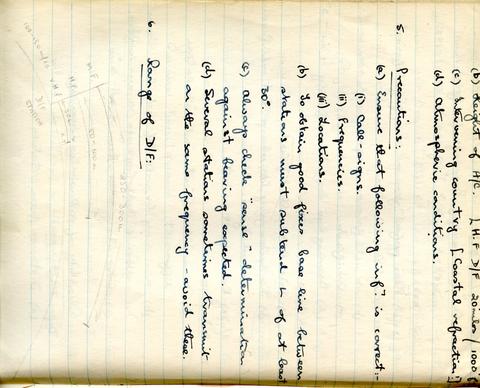 (b) Height of A/C. [H.F. D/F 20 miles / 1000 ft
(c) Intervening country [Coastal refraction]
(d) Atmospheric conditions.
5. Precautions:
(a) Ensure that following infⁿ. is correct:-
(i) Call-signs.
(ii) Frequencies.
(iii) Locations.
(b) To obtain good fixes base line between
stations must subtend ∟ of at least
30°.
(c) Always check "sense" determination
against bearing expected.
(d) Several stations sometimes transmit
on the same frequency - avoid these.
6. Range of D/F:
M.F.
H.F.
V.H.F.
D/F